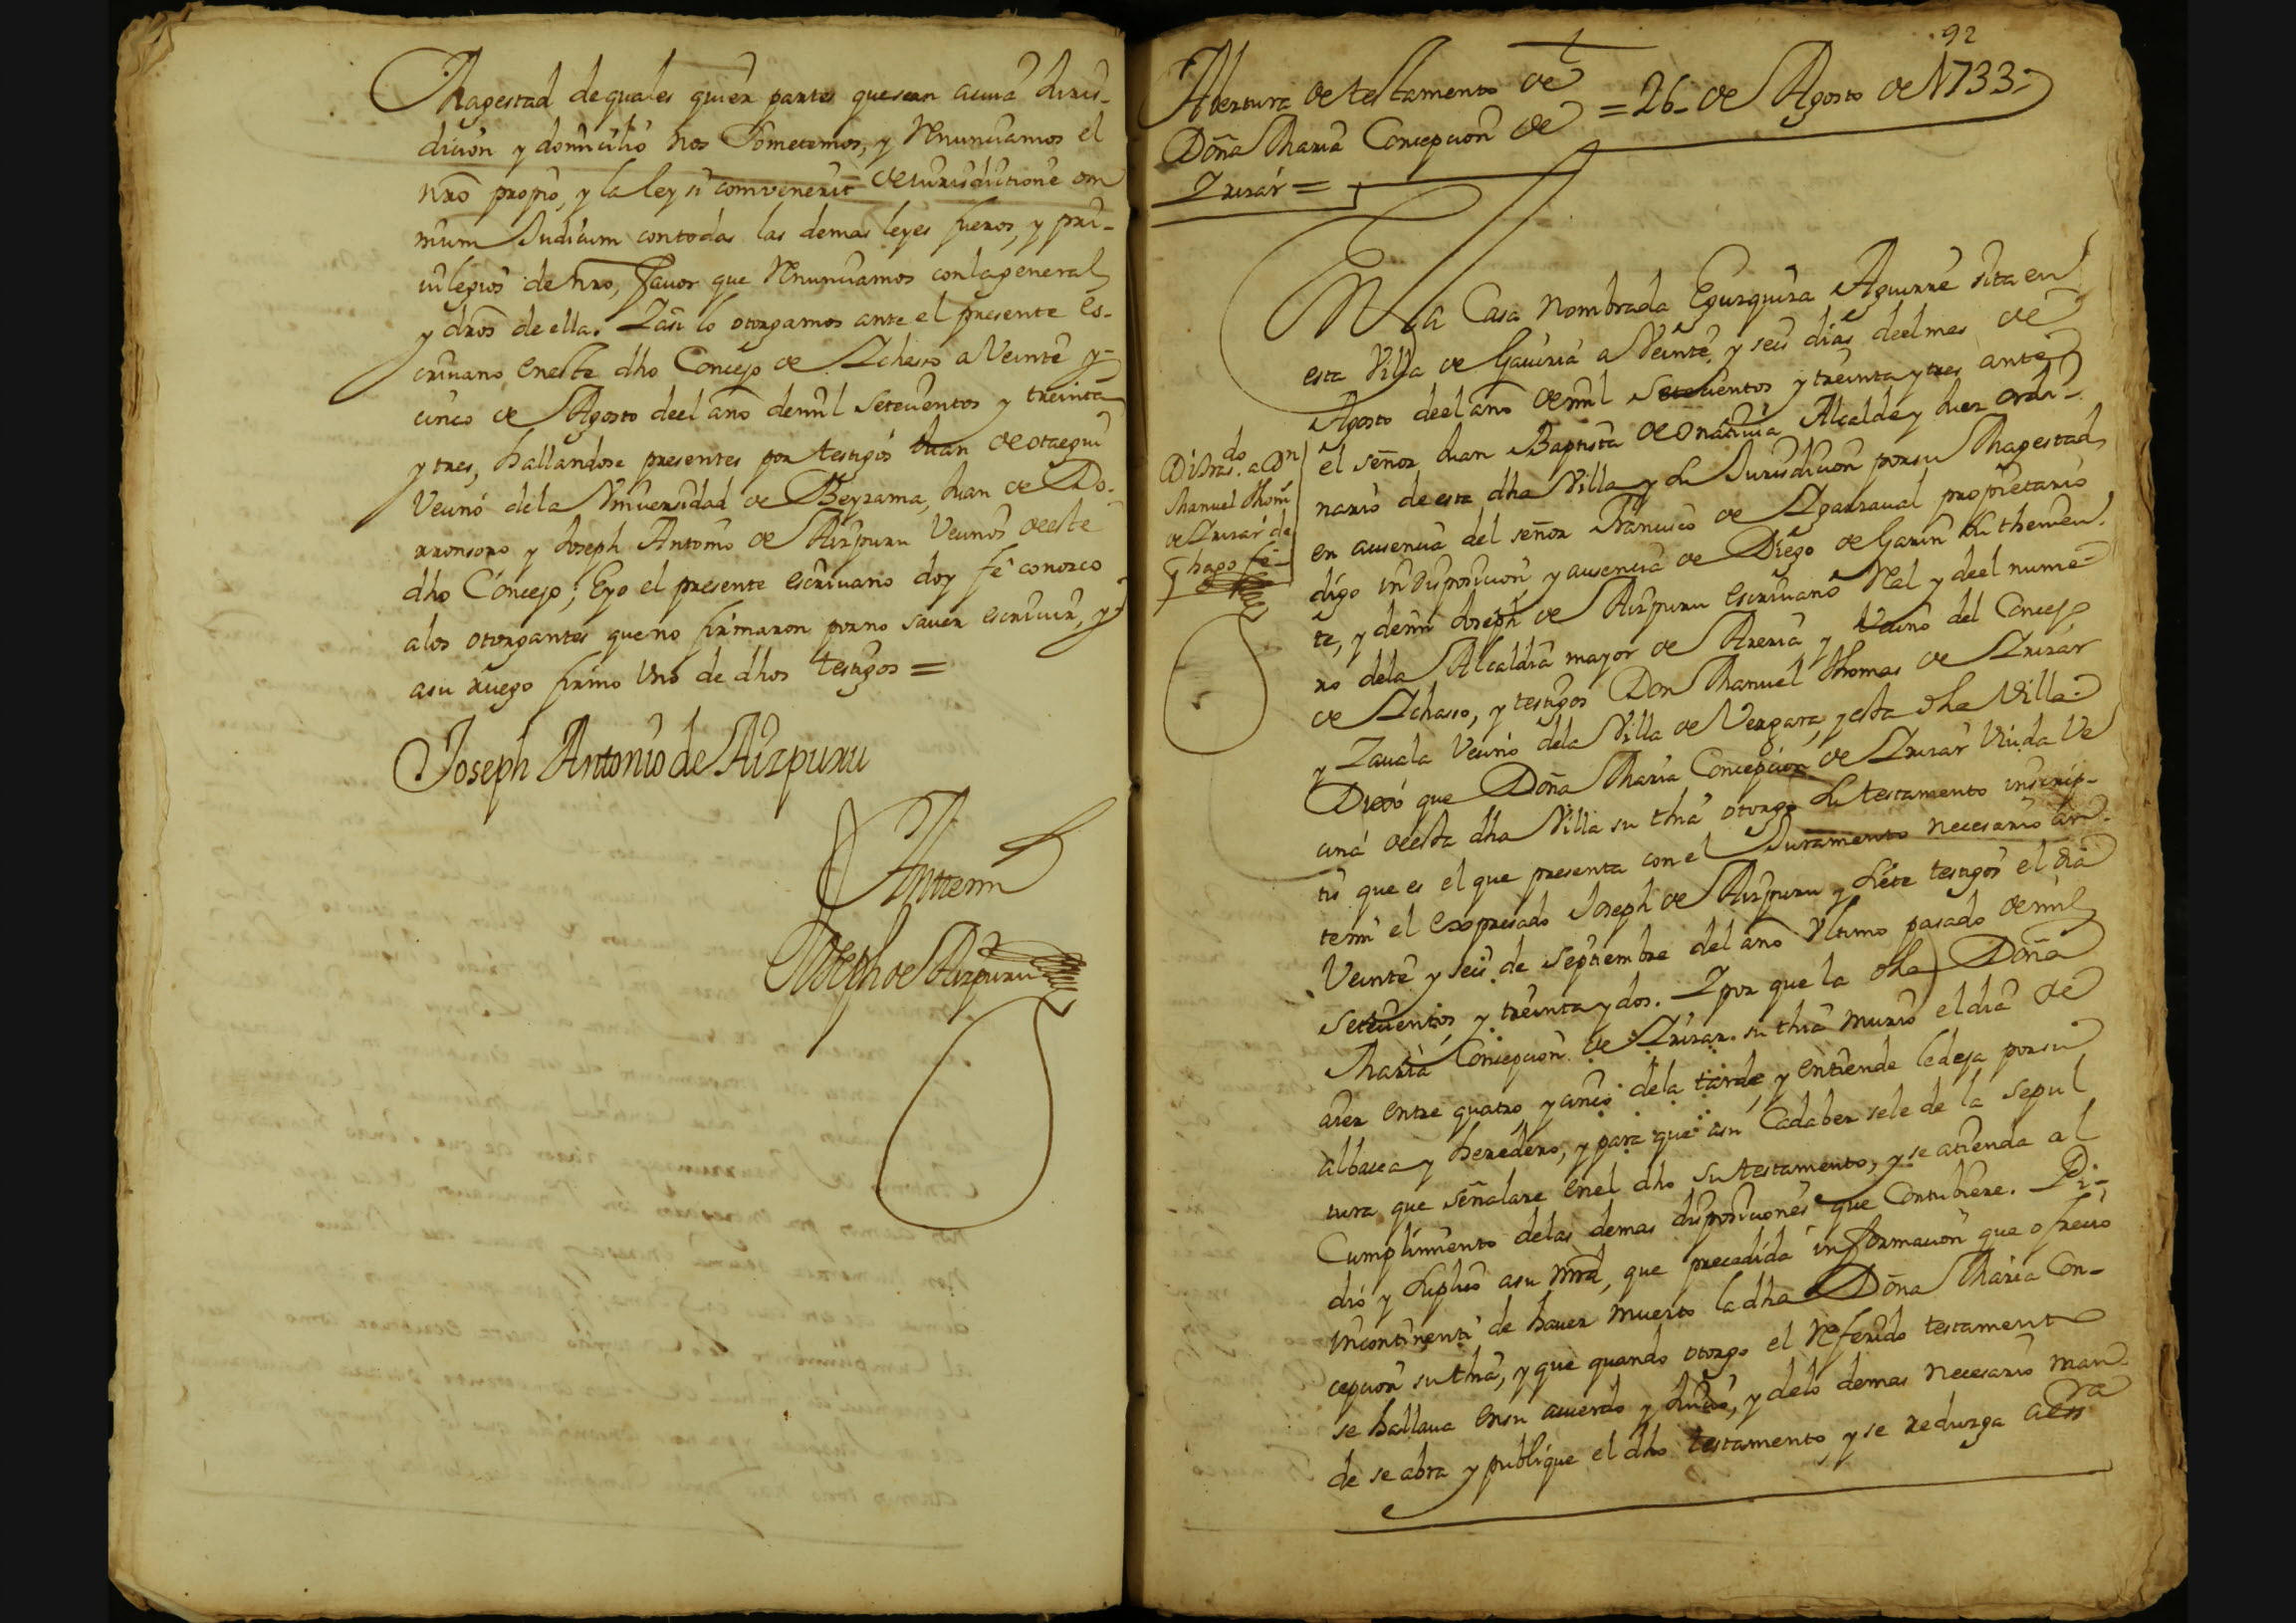 Magestad de quales quier partes quesean acuia Juris-
dicion y domicilio nos Sometemos, y Renunciamos el
nro propio, y la ley si combenerit de iurisdictione om
nium Judicum contodas las demas leyes fueros, y pri-
uilegios de nro, fauor que Renunciamos conlageneral
y dros de ella. Yasi lo otorgamos ante el presente es-
criuano eneste dho Concejo de Ychaso a Veinte y
cinco de Agosto deel año demil Setecientos y treinta
y tres, hallandose presentes por testigos Juan de otaegui
Vecino dela Vniuersidad de Beyzama, Juan de Do-
rronsoro y Joseph Antonio de Aizpuru Vecinos deeste
dho Concejo; Eyo el presente escriuano doy fe conozco
alos otorgantes queno firmaron porno sauer escriuir, y
asu ruego firmo Vno de dhos testigos =
Joseph Antonio de Aizpuru
Antemi
Joseph de Aizpuru
92
Abertura de testamento de
Doña Maria Concepcion de
Yrizar =
= 26- de Agosto de 1733-
En la Casa nombrada Eguzquiza Aguirre sita en
esta Villa de Gauiria a Veinte y seis dias deelmes de
Agosto deel año demil Setecientos y treinta y tres ante
el señor Juan Baptista de Onativia Alcalde y Juez ordi-
nario de esta dha Villa y Su Jurisdicion porsu Magestad
en ausencia del señor Francisco de Ygarzaual proprietario
digo indisposicion y ausencia de Diego de Garin Su thenien-
te, y demi Joseph de Aizpuru escriuano Real y deel nume-
ro dela Alcaldia mayor de Areria y Vecino del Concejo
de Ychaso, y testigos Don Manuel Thomas de Yrizar
y Zauala Vecino dela Villa de Vergara, y esta dha Villa
Dixo que Doña Maria Concepcion de Yrizar Viuda Ve
cina deesta dha Villa su thia otorgo Su testamento inscrip-
tis que es el que presenta con el Juramento necesario an-
temi el expresado Joseph de Aizpuru y siete testigos el dia
Veinte y seis de Septiembre del año Vltimo pasado demil
Setecientos y treinta y dos. Y por que la dha Doña
Maria Concepcion de Yrizar su thia murio eldia de
aier entre quatro y cinco dela tarde, y entiende ledeja porsu
albacea y heredero, y para que asu Cadaber sele de la sepul
tura que señalare enel dho Su testamento, y se atienda al
Cumplimiento delas demas disposiciones que Contubiere. Pi-
dio y Suplico asu Mrd, que precedida informacion que ofrecio
incontinenti de hauer muerto ladha Doña Maria Con-
cepcion su thia, y que quando otorgo el Referido testamento
se hallaua ensu acuerdo y Juicio, y delo demas necesario man-
de se abra y publique el dho testamento, y se reduzga aess
ra
Di tras.do a Dn
Manuel Thoms
de Yrizar de
y hago fe-